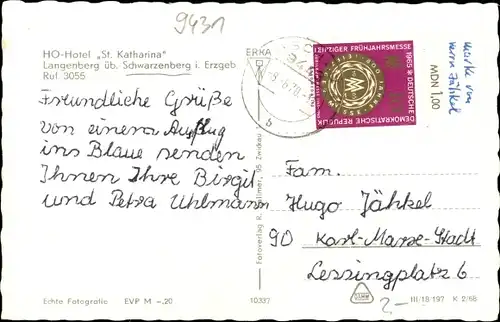 9431
HO-Hotel „St. Katharina"
Langenberg üb. Schwarzenberg i. Erzgeb
Ruf 3055
Freundliche Grüße
von einem Ausflug
ins Blaue senden
Ihnen Ihre Birgit
und Petra Uhlmann
Echte Fotografie EVP M -,20
ERKA
Fotoverlag R.
95 Zwickau
10337
LEIPZIGER FRÜHJAHRSMESSE
1965 DEUTSCHE
DEMOKRATISCHE REPUBLIK
MDN 1,00
Marke von
Herrn Jähkel
Fam.
Hugo Jähkel
90 Karl-Marx-Stadt
Lessingplatz 6
III/18/197 K 2/68
2,-